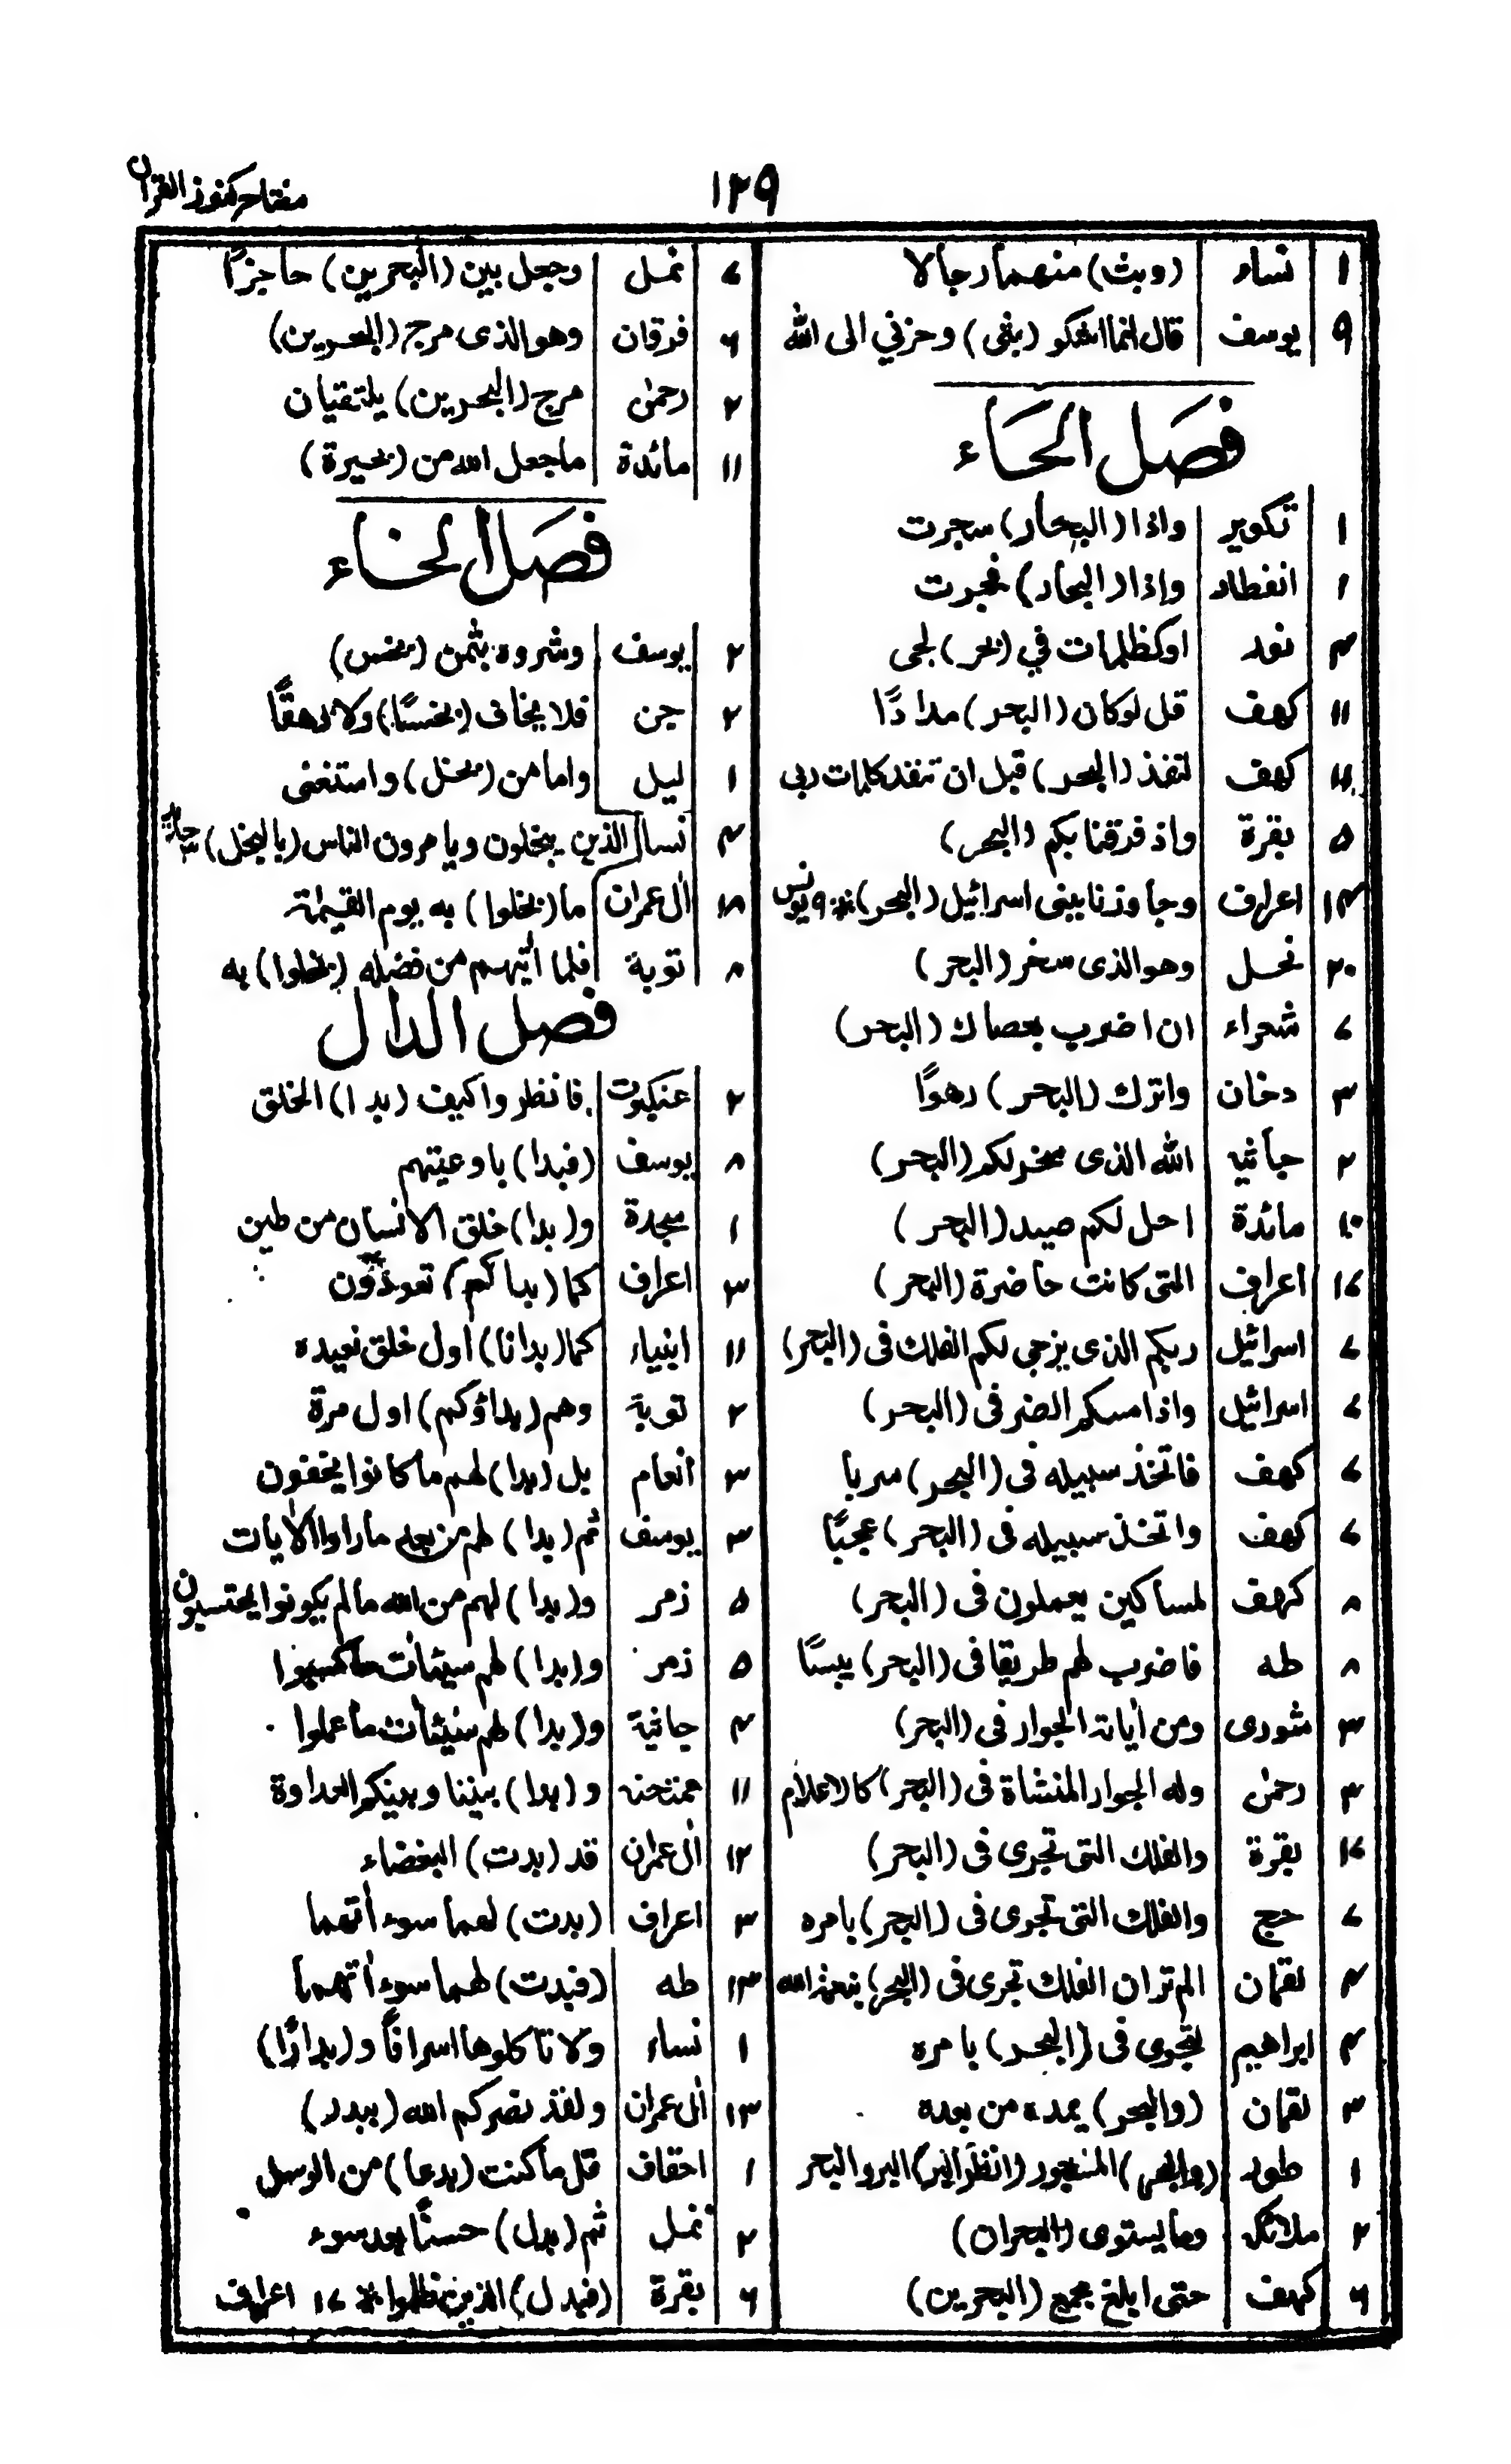 مفتاح كنوز القرآن
١٢٩
١ نساء (وبث) منهما رجالا
٩ يوسف قال انما اشكو (بثى) وحزني الى الله
فصل الحاء
١ تكوير واذا (البحار) سجرت
١ انفطار وإذا (البحار) فجرت
٤ نور اوكظلمات في (بحر) لجى
١١ كهف قل لوكان (البحر) مدادًا
١١ كهف لنفد (البحر) قبل ان تنفد كلمات ربى
٥ بقرة واذ فرقنا بكم (البحر)
١٤ اعراف وجاوزنا ببنى اسرائيل (البحر) ٩ يونس
٢٠ نحل وهو الذى سخر (البحر)
٧ شعراء ان اضرب بعصاك (البحر)
٣ دخان واترك (البحر) رهوًا
٢ جاثيه الله الذى سخر لكم (البحر)
١٠ مائدة احل لكم صيد (البحر)
١٧ اعراف التى كانت حاضرة (البحر)
٧ اسرائيل ربكم الذى يزجى لكم الفلك فى (البحر)
٧ اسرائيل واذا مسكم الضر فى (البحر)
٧ كهف فاتخذ سبيله فى (البحر) سربا
٧ كهف واتخذ سبيله فى (البحر) عجبًا
٨ كهف لمساكين يعملون فى (البحر)
٨ طه فاضرب لهم طريقا فى (البحر) يبسًا
٣ شورى ومن أياته الجوار فى (البحر)
٣ رحمن وله الجوار المنشاة فى (البحر) كالاعلام
١٧ بقرة والفلك التى تجرى فى (البحر)
٧ حج والفلك التى تجرى فى (البحر) بامره
٤ لقمان الم تر ان الفلك تجرى فى (البحر) بنعمة الله
٤ ابراهيم لتجرى فى (البحر) بامره
٣ لقمان (والبحر) يمده من بعده
١ طور (والبحر) المسجور (انظر البر) البر والبحر
٢ ملائكه وما يستوى (البحران)
٦ كهف حتى ابلغ مجمع (البحرين)
٧ نمل وجعل بين (البحرين) حاجزًا
٦ فرقان وهو الذى مرج (البحرين)
٢ رحمن مرج (البحرين) يلتقيان
١١ مائدة ماجعل الله من (بحيرة)
فصل الخاء
٢ يوسف وشروه بثمن (بخس)
٢ جن فلا يخاف (بخسًا) ولا رهقًا
١ ليل واما من (بخل) واستغنى
٤ نسا الذين يبخلون ويامرون الناس (بالبخل)
١٨ ال عمران ما (بخلوا) به يوم القيمة
٨ توبة فلما أتيهم من فضله (بخلوا) به
فصل الدال
٢ عنكبوت فانظروا كيف (بدا) الخلق
٨ يوسف (فبدا) باوعيتهم
١ سجدة و(بدا) خلق الانسان من طين
٣ اعراف كما (بداكم) تعودون
١١ انبياء كما (بدانا) اول خلق نعيده
٢ توبة وهم (بداؤكم) اول مرة
٣ انعام بل (بدا) لهم ما كانوا يخفون
٣ يوسف ثم (بدا) لهم من بعد ما راوا الايات
٥ زمر و(بدا) لهم من الله مالم يكونوا يحتسبون
٥ زمر و(بدا) لهم سيئات ماكسبوا
٤ جاثية و(بدا) لهم سيئات ماعملوا
١١ ممتحنه و(بدا) بيننا وبينكم العداوة
١٢ ال عمران قد (بدت) البغضاء
٣ اعراف (بدت) لهما سوء أتهما
١٣ طه (فبدت) لهما سوء أتهما
١ نساء ولا تاكلوها اسرافًا و(بدارًا)
١٣ ال عمران ولقد نصركم الله (ببدر)
١ احقاف قل ماكنت (بدعا) من الرسل
٢ نمل ثم (بدل) حسنًا بعد سوء
٦ بقرة (فبدل) الذين ظلموا ١٧ اعراف